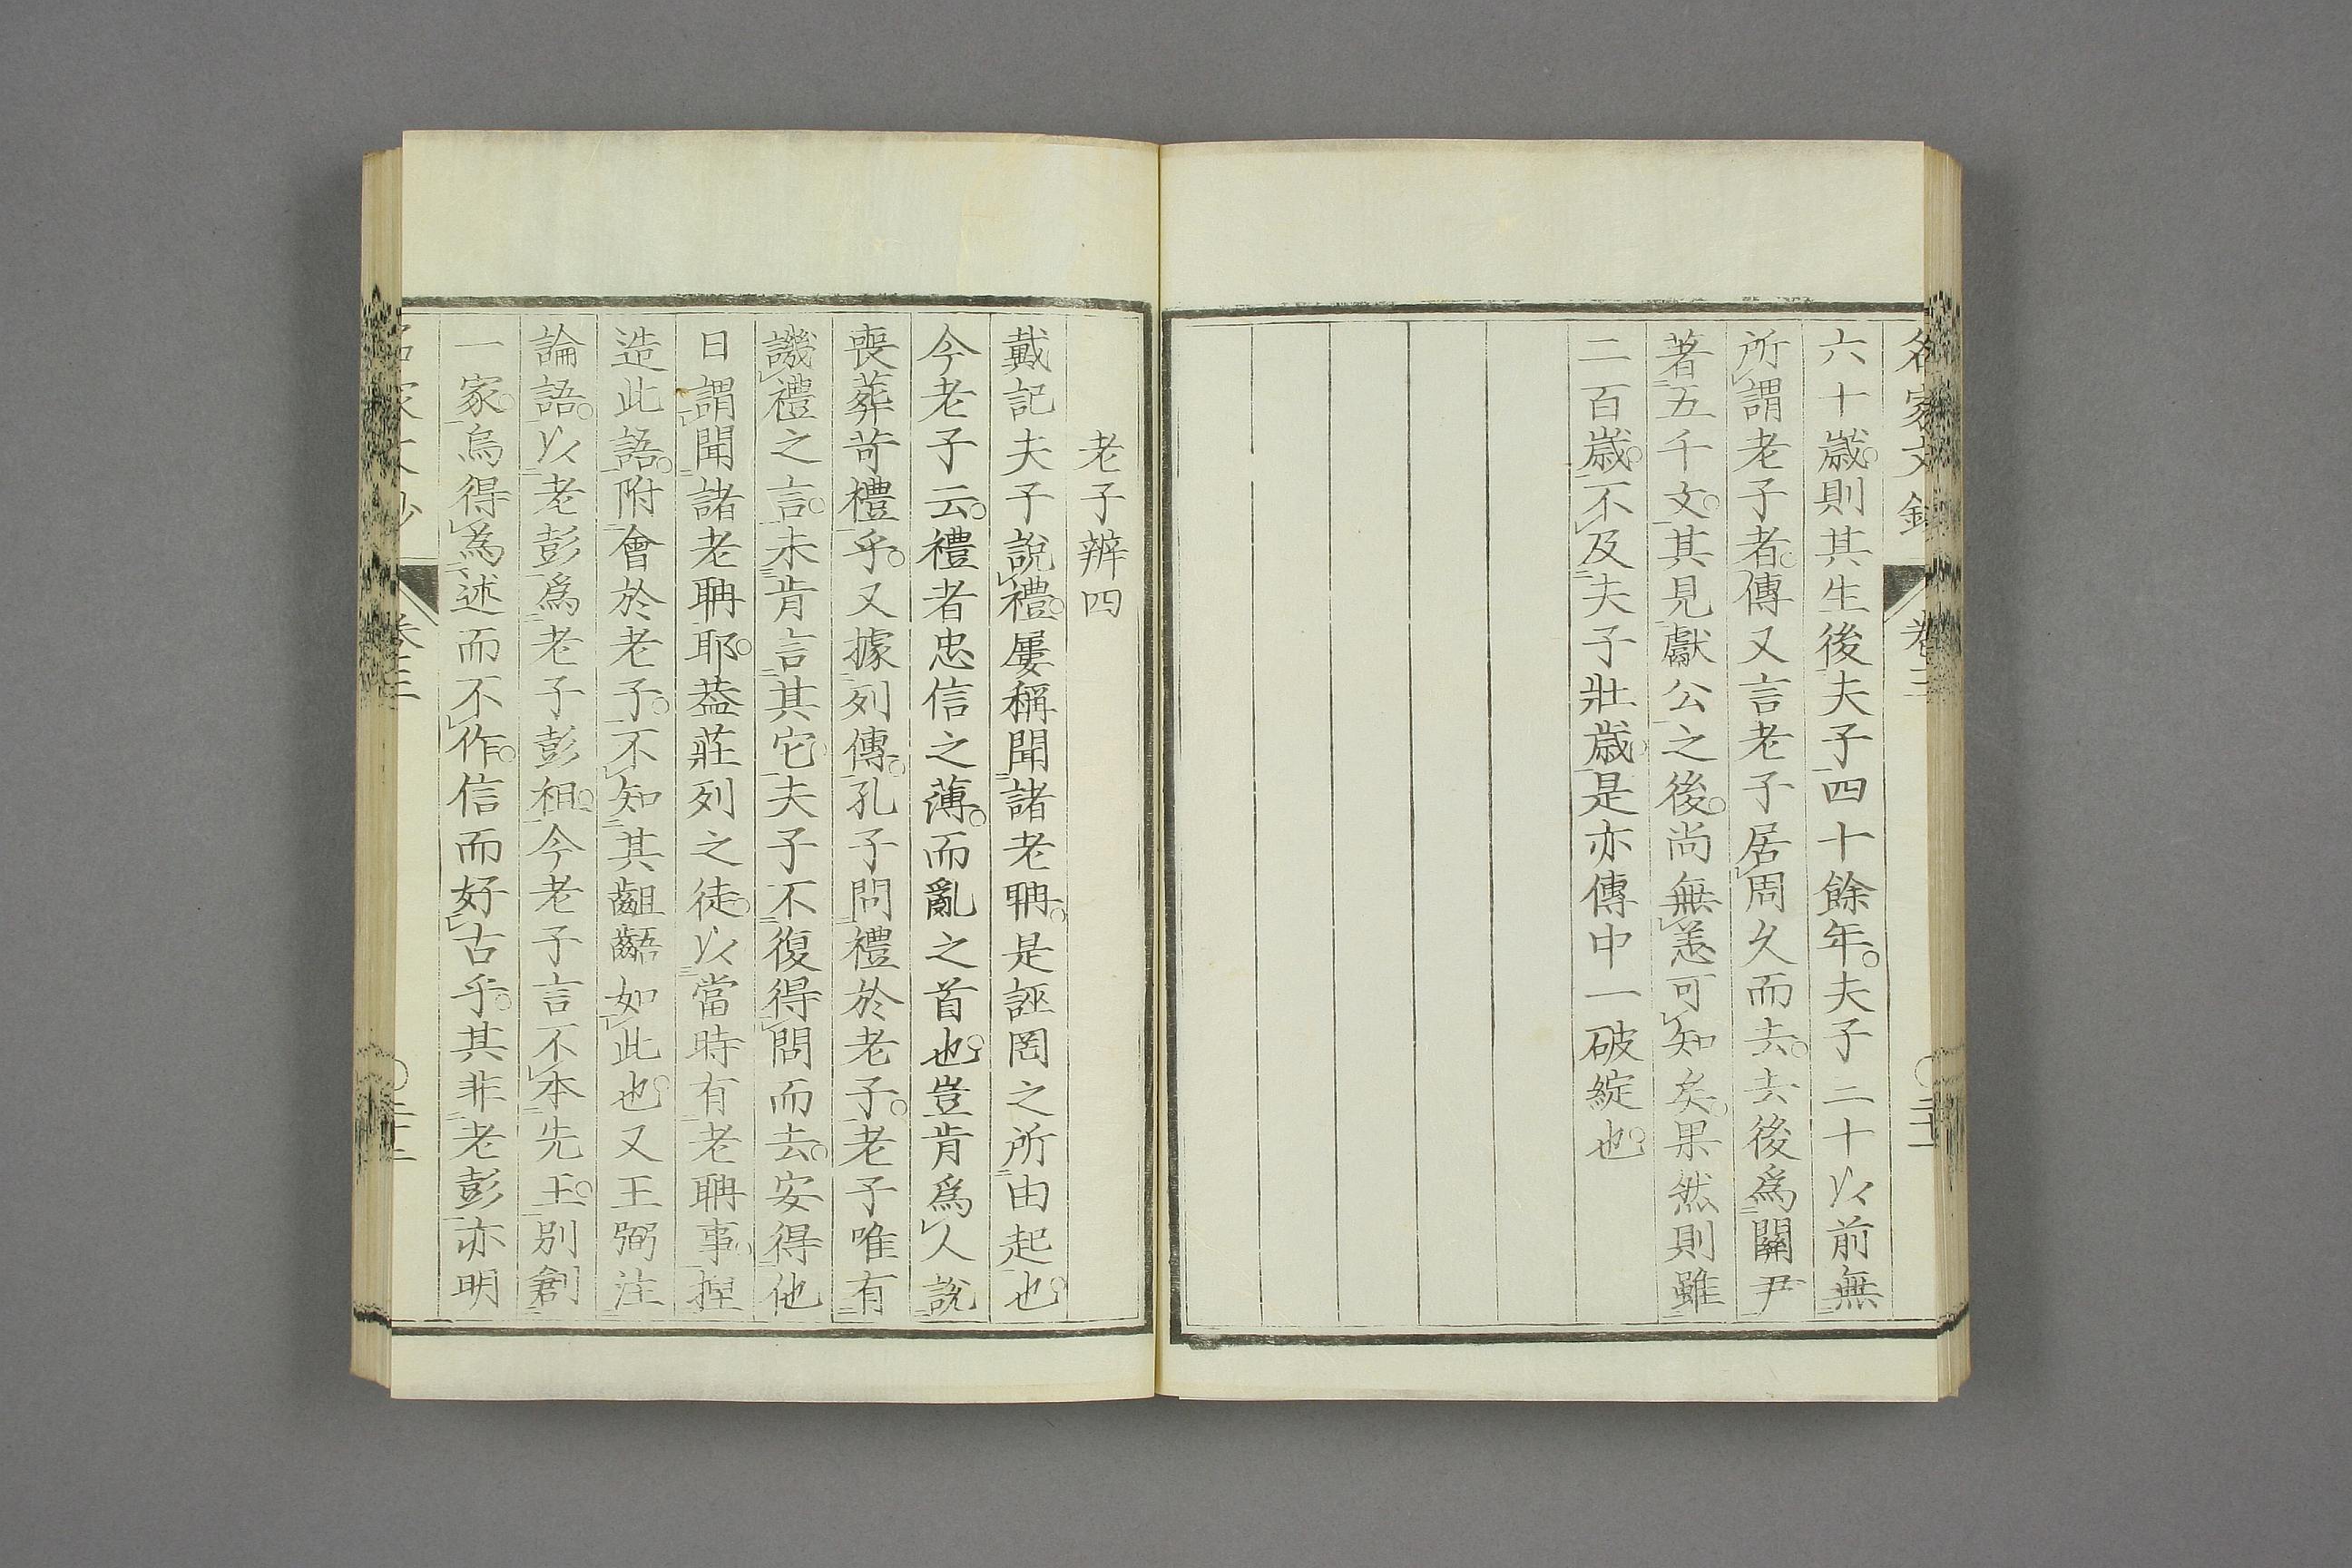 名家文鈔 卷三
六十歲則其生後夫子四十餘年。夫子二十以前無
所謂老子者。傳又言老子居周久而去。去後爲關尹
著五千文。其見獻公之後。尚無恙可知矣。果然則雖
二百歲。不及夫子壯歲。是亦傳中一破綻也。
老子辨四
戴記夫子說禮。屢稱聞諸老聃。是誣罔之所由起也。
今老子云。禮者忠信之薄。而亂之首也。豈肯爲人說
喪葬苛禮乎。又據列傳。孔子問禮於老子。老子唯有
譏禮之言。未肯言其它。夫子不復得問而去。安得他
日謂聞諸老聃耶。葢莊列之徒。以當時有老聃事。捏
造此語。附會於老子。不知其齟齬如此也。又王弼注
論語。以老彭爲老子彭祖。今老子言不本先王。別創
一家。烏得爲述而不作。信而好古乎。其非老彭亦明
名家文鈔 卷三